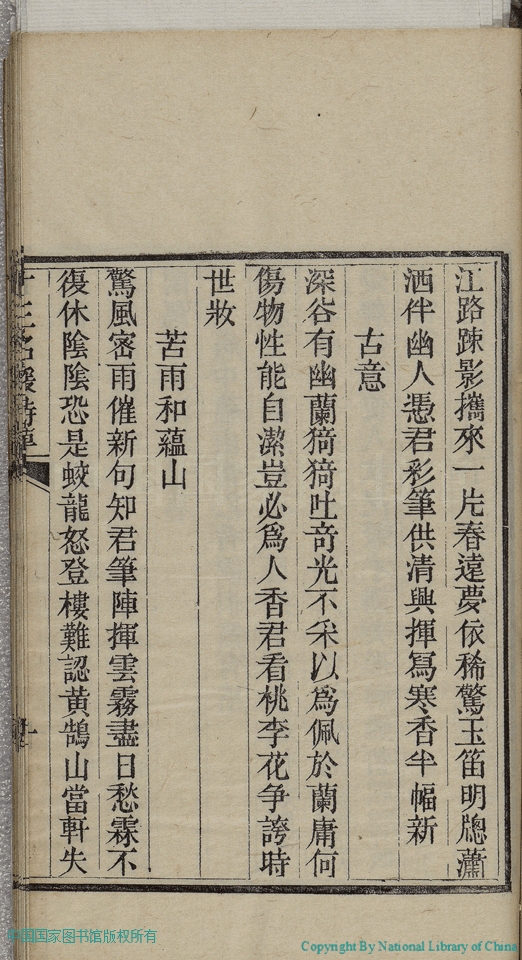 江路踈影攜來一片春遠夢依稀驚玉笛明牕蕭
洒伴幽人憑君彩筆供清興揮寫寒香半幅新
古意
深谷有幽蘭猗猗吐奇光不采以爲佩於蘭庸何
傷物性能自潔豈必爲人香君看桃李花争誇時
世妝
苦雨和蘊山
驚風密雨催新句知君筆陣揮雲霧盡日愁霖不
復休陰陰恐是蛟龍怒登樓難認黃鵠山當軒失
中国国家图书馆版权所有
Copyright By National Library of China